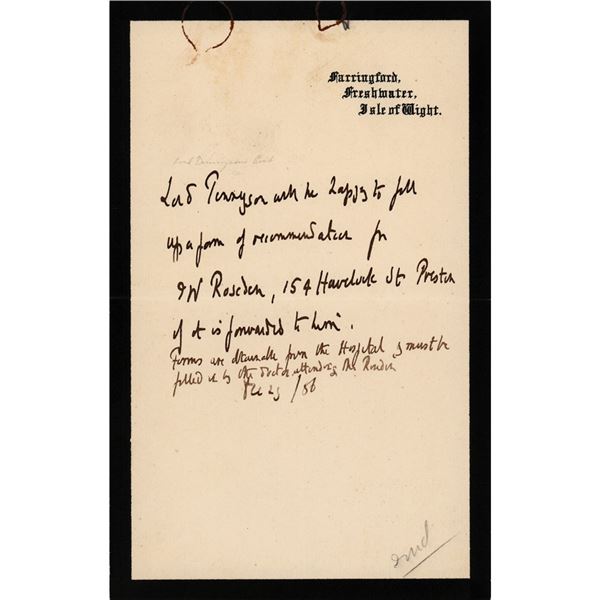 Farringford,
Freshwater,
Isle of Wight.
Lord Tennyson will be happy to fill
up a form of recommendation for
Roseden, 154 Havelock St Preston
if it is forwarded to him.
Forms are obtainable from the Hospital & must be
filled in by the doctor attending
/86